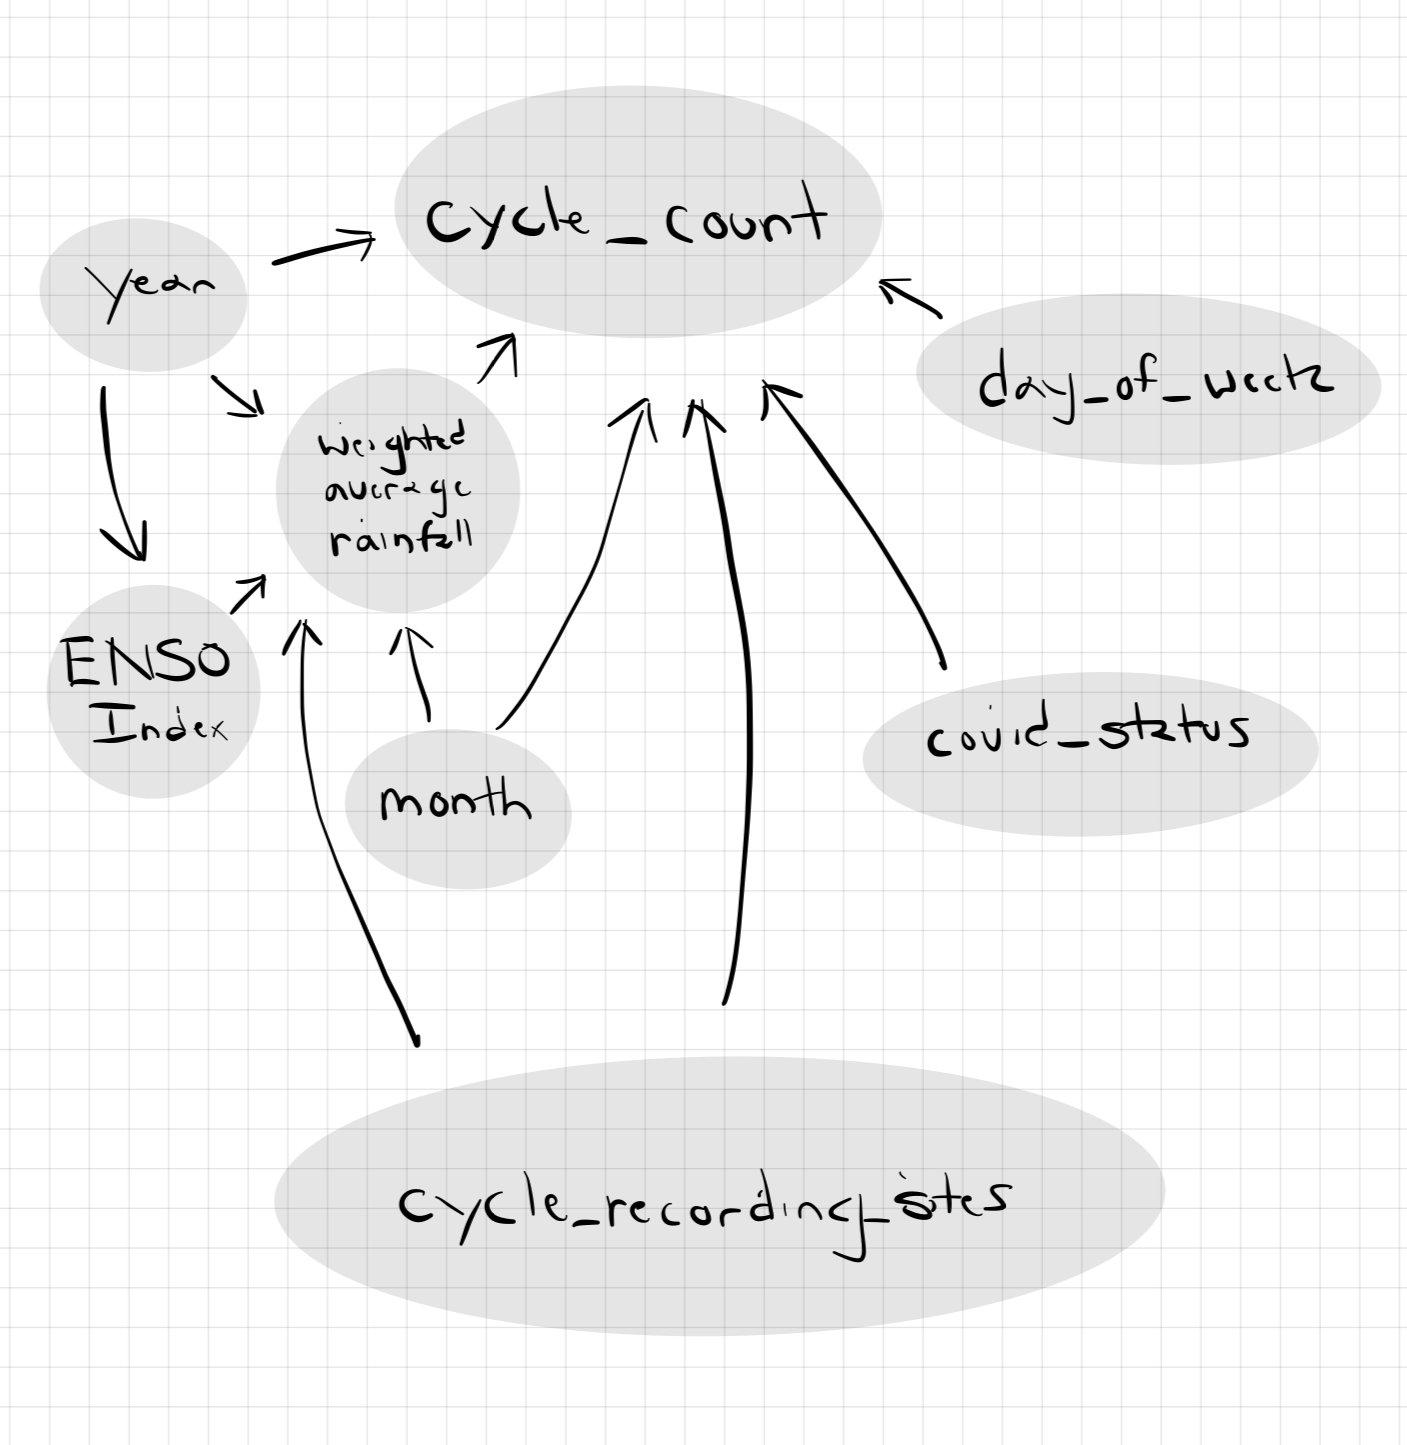 cycle_count
year
day_of_week
weighted
average
rainfall
ENSO
Index
covid_status
month
cycle_recording_sites